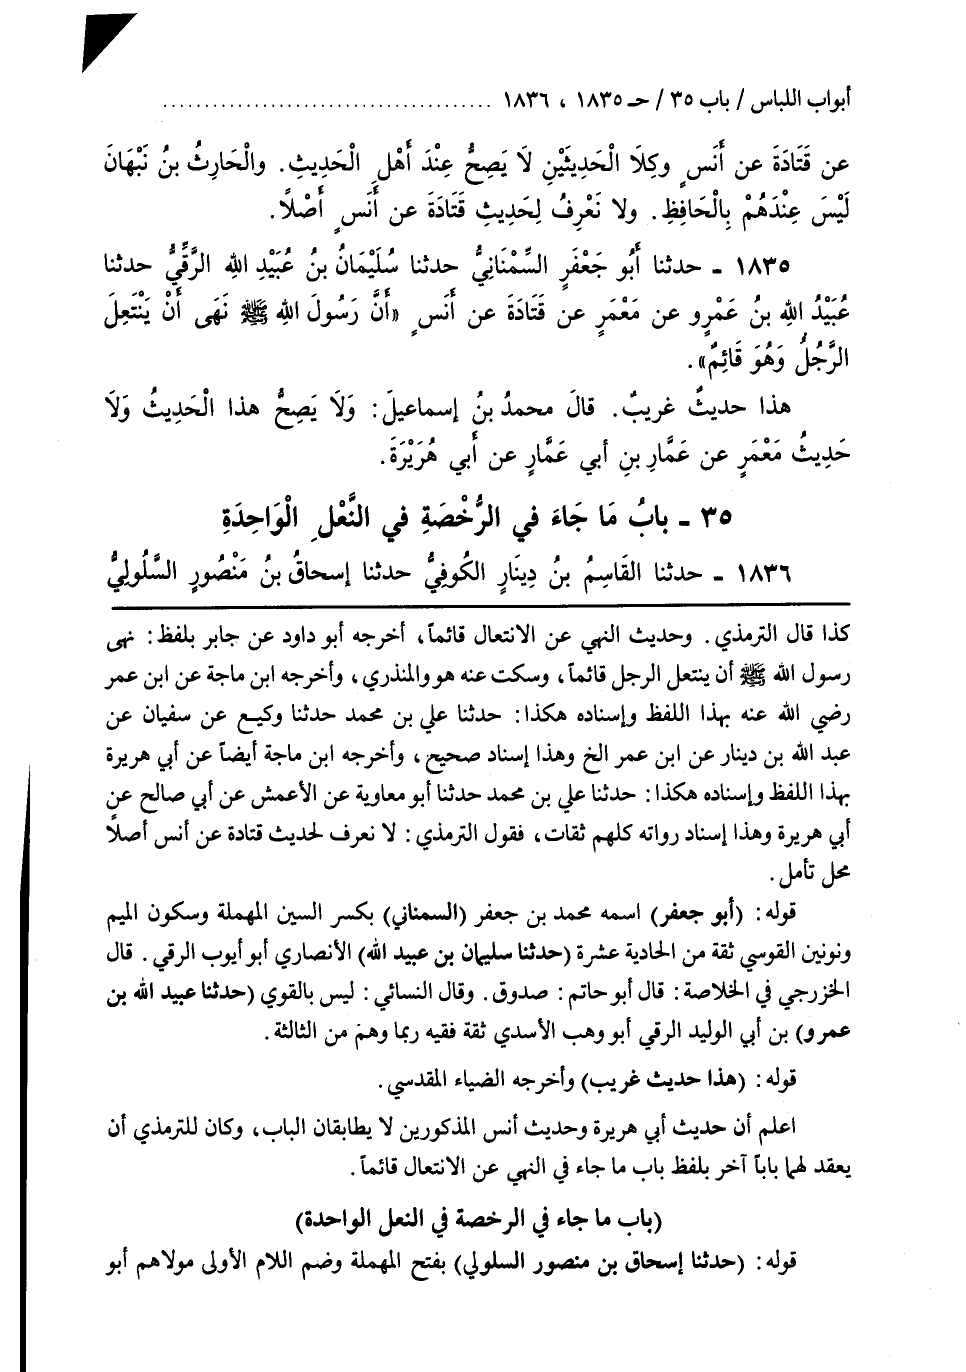 أبواب اللباس / باب ٣٥ / حـ ١٨٣٥ ، ١٨٣٦ ........................................
عن قَتَادَةَ عن أَنَسٍ وكِلَا الْحَدِيثَيْنِ لَا يَصِحُّ عِنْدَ أَهْلِ الْحَدِيثِ. والْحَارِثُ بنُ نَبْهَانَ
لَيْسَ عِنْدَهُمْ بِالْحَافِظِ. ولا نَعْرِفُ لِحَدِيثِ قَتَادَةَ عن أَنَسٍ أَصْلًا.
١٨٣٥ - حدثنا أَبُو جَعْفَرٍ السِّمْنَانِيُّ حدثنا سُلَيْمَانُ بنُ عُبَيْدِ اللهِ الرَّقِّيُّ حدثنا
عُبَيْدُ اللهِ بنُ عَمْرٍو عن مَعْمَرٍ عن قَتَادَةَ عن أَنَسٍ «أَنَّ رَسُولَ اللهِ ﷺ نَهَى أَنْ يَنْتَعِلَ
الرَّجُلُ وَهُوَ قَائِمٌ».
هذا حديثٌ غريبٌ. قالَ محمدُ بنُ إسماعيلَ: وَلَا يَصِحُّ هذا الْحَدِيثُ وَلَا
حَدِيثُ مَعْمَرٍ عن عَمَّارِ بنِ أبي عَمَّارٍ عن أَبي هُرَيْرَةَ.
٣٥ - بابُ مَا جَاءَ في الرُّخْصَةِ في النَّعْلِ الْوَاحِدَةِ
١٨٣٦ - حدثنا القَاسِمُ بنُ دِينَارٍ الكُوفِيُّ حدثنا إسحاقُ بنُ مَنْصُورٍ السَّلُولِيُّ
كذا قال الترمذي. وحديث النهي عن الانتعال قائماً، أخرجه أبو داود عن جابر بلفظ: نهى
رسول الله ﷺ أن ينتعل الرجل قائماً، وسكت عنه هو والمنذري، وأخرجه ابن ماجة عن ابن عمر
رضي الله عنه بهذا اللفظ وإسناده هكذا: حدثنا علي بن محمد حدثنا وكيع عن سفيان عن
عبد الله بن دينار عن ابن عمر الخ وهذا إسناد صحيح، وأخرجه ابن ماجة أيضاً عن أبي هريرة
بهذا اللفظ وإسناده هكذا: حدثنا علي بن محمد حدثنا أبو معاوية عن الأعمش عن أبي صالح عن
أبي هريرة وهذا إسناد رواته كلهم ثقات، فقول الترمذي: لا نعرف لحديث قتادة عن أنس أصلاً
محل تأمل.
قوله: (أبو جعفر) اسمه محمد بن جعفر (السمناني) بكسر السين المهملة وسكون الميم
ونونين القوسي ثقة من الحادية عشرة (حدثنا سليمان بن عبيد الله) الأنصاري أبو أيوب الرقي. قال
الخزرجي في الخلاصة: قال أبو حاتم: صدوق. وقال النسائي: ليس بالقوي (حدثنا عبيد الله بن
عمرو) بن أبي الوليد الرقي أبو وهب الأسدي ثقة فقيه ربما وهم من الثالثة.
قوله: (هذا حديث غريب) وأخرجه الضياء المقدسي.
اعلم أن حديث أبي هريرة وحديث أنس المذكورين لا يطابقان الباب، وكان للترمذي أن
يعقد لهما باباً آخر بلفظ باب ما جاء في النهي عن الانتعال قائماً.
(باب ما جاء في الرخصة في النعل الواحدة)
قوله: (حدثنا إسحاق بن منصور السلولي) بفتح المهملة وضم اللام الأولى مولاهم أبو